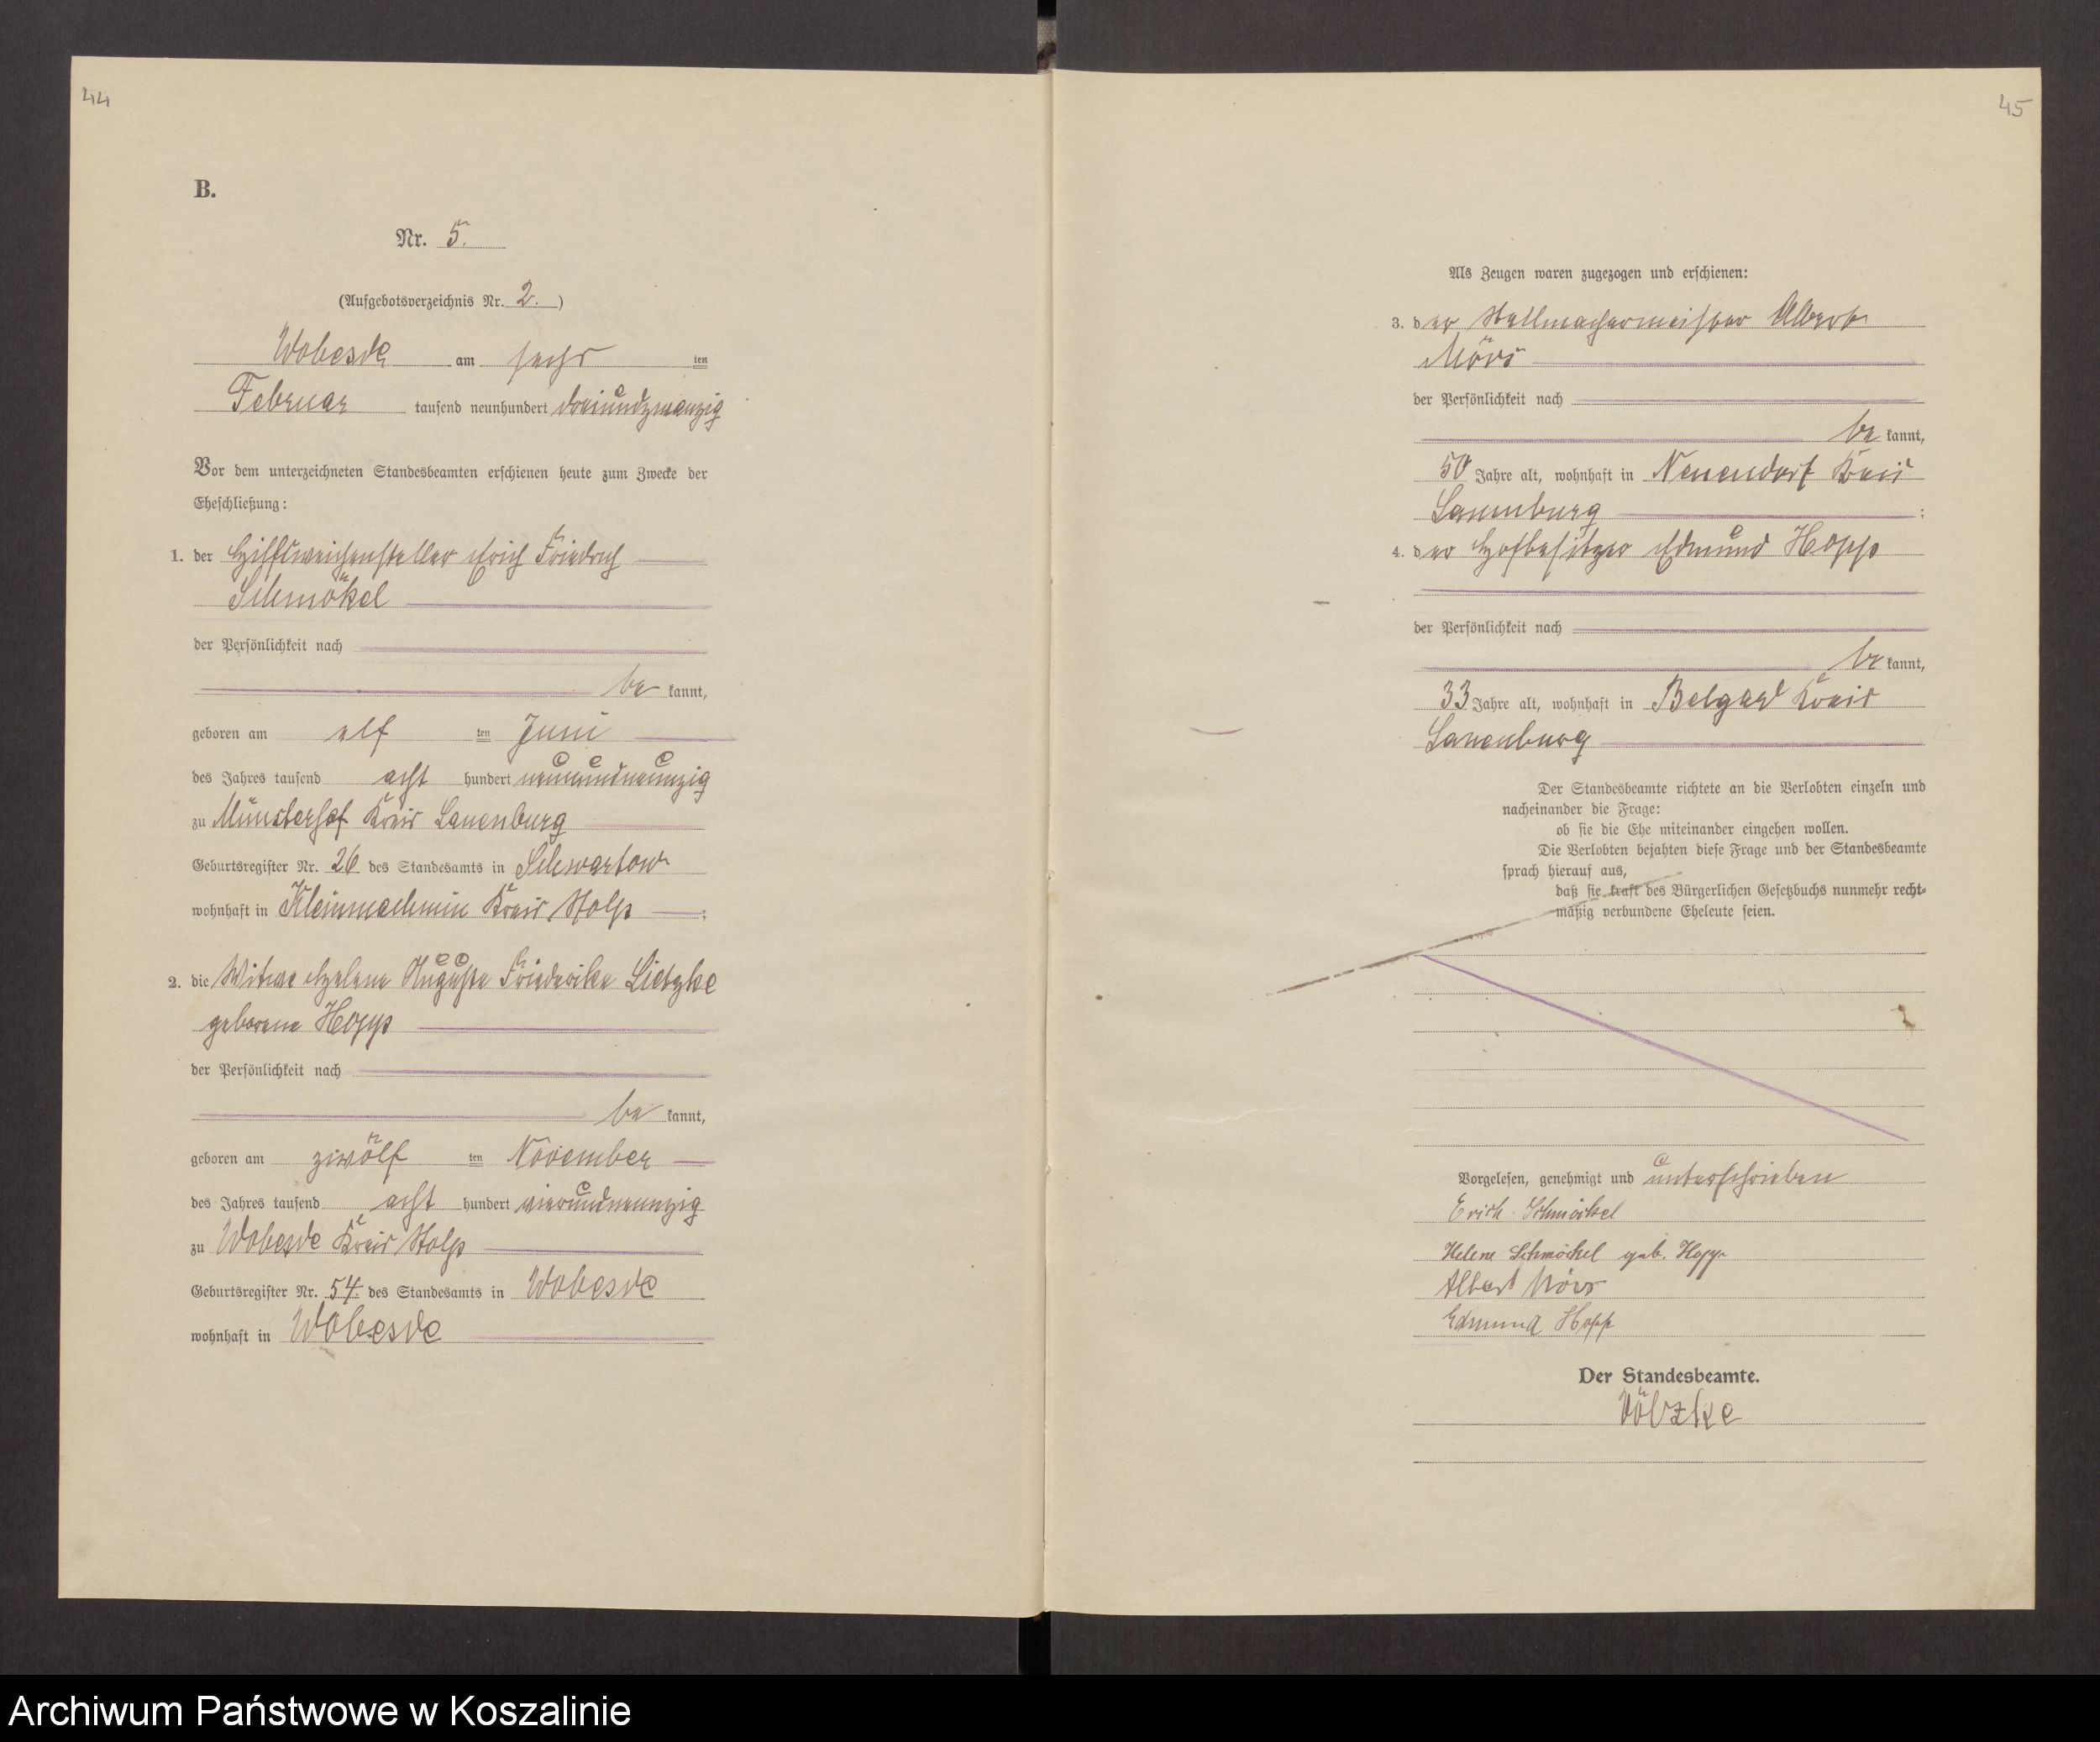 44
B.
Nr. 5.
(Aufgebotsverzeichnis Nr. 2.)
Wobesde am sechs ten
Februar tausend neunhundert dreiundzwanzig
Vor dem unterzeichneten Standesbeamten erschienen heute zum Zwecke der
Eheschließung:
1. der Hilfsweichensteller Erich Friedrich
Schmökel
der Persönlichkeit nach
be kannt,
geboren am elf ten Juni
des Jahres tausend acht hundert neunundneunzig
zu Münsterhof Kreis Lauenburg
Geburtsregister Nr. 26 des Standesamts in Schwartow
wohnhaft in Kleinmachmin Kreis Stolp ;
2. die Witwe Helene Auguste Friederike Lietzke
geborene Hopp
der Persönlichkeit nach
be kannt,
geboren am zwölf ten November
des Jahres tausend acht hundert vierundneunzig
zu Wobesde Kreis Stolp
Geburtsregister Nr. 54 des Standesamts in Wobesde
wohnhaft in Wobesde
45
Als Zeugen waren zugezogen und erschienen:
3. der Stellmachermeister Albert
Mörs
der Persönlichkeit nach
be kannt,
50 Jahre alt, wohnhaft in Neuendorf Kreis
Lauenburg ;
4. der Hofbesitzer Edmund Hopp
der Persönlichkeit nach
be kannt,
33 Jahre alt, wohnhaft in Belgard Kreis
Lauenburg
Der Standesbeamte richtete an die Verlobten einzeln und
nacheinander die Frage:
ob sie die Ehe miteinander eingehen wollen.
Die Verlobten bejahten diese Frage und der Standesbeamte
sprach hierauf aus,
daß sie kraft des Bürgerlichen Gesetzbuchs nunmehr recht-
mäßig verbundene Eheleute seien.
Vorgelesen, genehmigt und unterschrieben
Erich Schmökel
Helene Schmökel geb. Hopp
Albert Mörs
Edmund Hopp
Der Standesbeamte.
Völzke
Archiwum Państwowe w Koszalinie